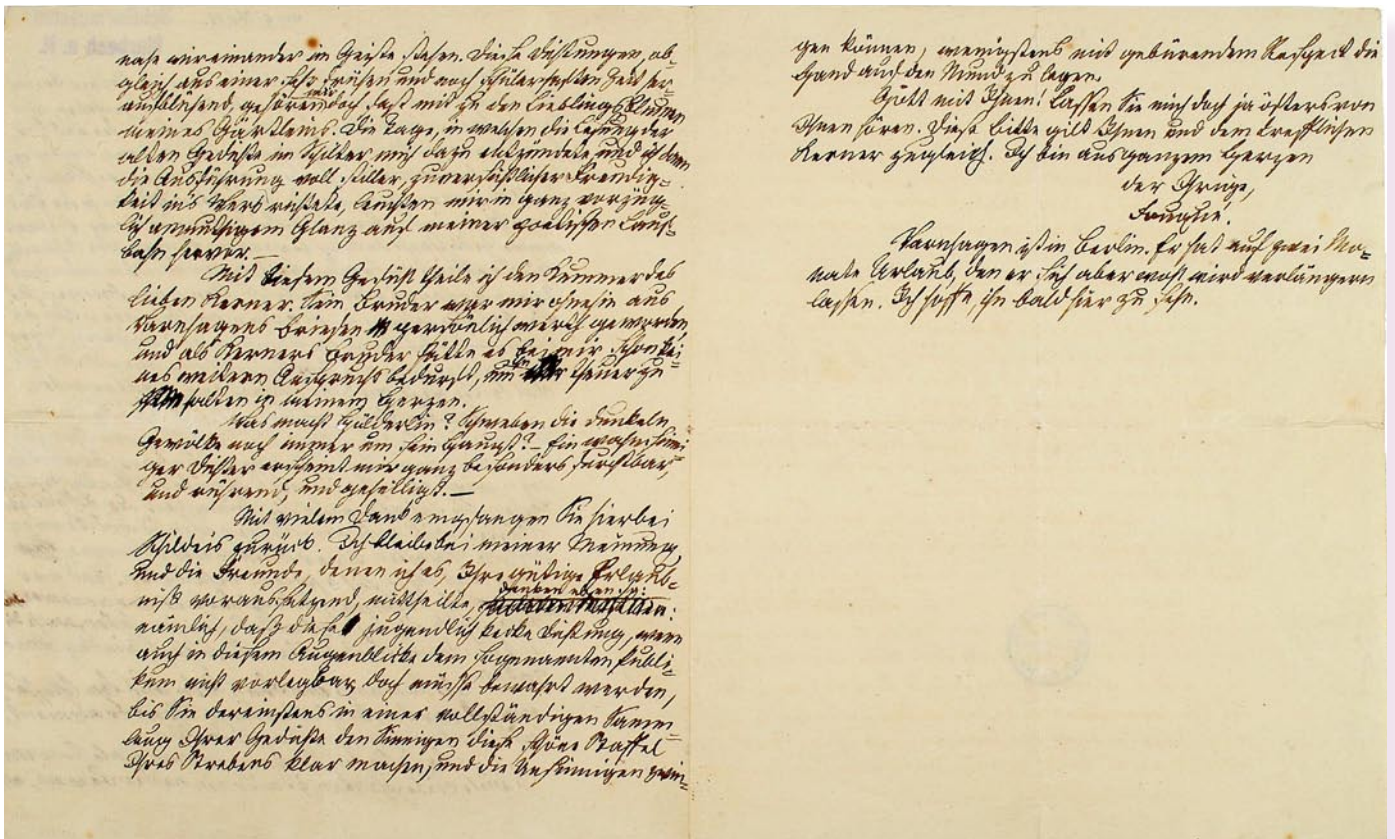 nahe wir einander im Geiste stehen. Diese Dichtungen, ob-
gleich aus einer sehr frühen und noch schülerhaften Zeit her-
aufblühend, gehören mir doch fast mit zu den Lieblingsblumen
meines Gärtleins. Die Tage, in welchen die Lesung der
alten Gedichte im Schilter mich dazu entzündete und ich dann
die Ausführung voll stiller, zuversichtlicher Freudig-
keit in's Werk richtete, leuchten mir in ganz vorzüg-
lich anmuthigem Glanz auf meiner poetischen Lauf-
bahn hervor. —
Mit diesem Gedicht theile ich den Kummer des
lieben Kerner. Sein Bruder war mir ohnehin aus
Varnhagens Briefen persönlich werth geworden,
und als Kerners Bruder hätte es bei mir schon kei-
nes weitern Anspruchs bedurft, um ihn theuer zu
halten in meinem Herzen.
Was macht Hölderlin? Schweben die dunkeln
Gewölke noch immer um sein Haupt? – Ein wahnsinni-
ger Dichter erscheint mir ganz besonders furchtbar,
und rührend, und geheiligt. —
Mit vielem Dank empfangen Sie hierbei
Schildeis zurück. Ich bleibe bei meiner Meinung,
und die Freunde, denen ich es, Ihre gütige Erlaub-
niß voraussetzend, mittheilte, denken eben so:
nämlich, daß diese jugendlich kecke Dichtung, wenn
auch in diesem Augenblicke dem sogenannten Publi-
kum nicht vorlegbar, doch müsse bewahrt werden,
bis Sie dereinstens in einer vollständigen Samm-
lung Ihrer Gedichte den Sinnigen diese schöne Staffel
Ihres Strebens klar machen, und die Unsinnigen zwin-
gen können, wenigstens mit gebürendem Respect die
Hand auf den Mund zu legen.
Gott mit Ihnen! Lassen Sie mich doch ja öfters von
Ihnen hören. Diese Bitte gilt Ihnen und dem trefflichen
Kerner zugleich. Ich bin aus ganzem Herzen
der Ihrige,
Fouqué.
Varnhagen ist in Berlin. Er hat auf zwei Mo-
nate Urlaub, den er sich aber wohl wird verlängern
lassen. Ich hoffe, ihn bald hier zu sehn.